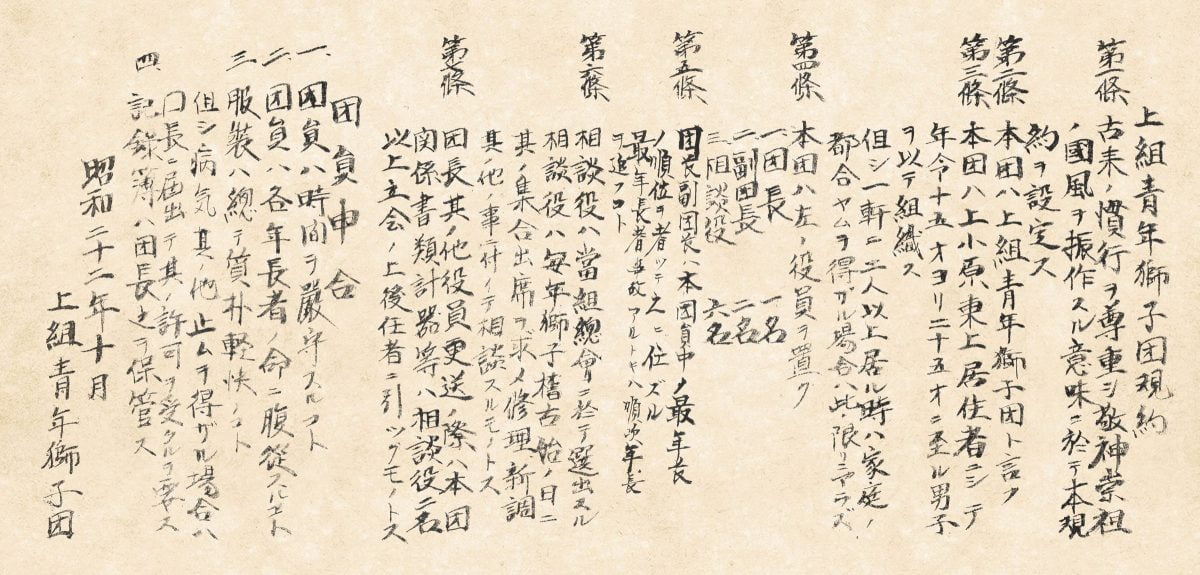 上組青年獅子団規約
第一條 古来ノ慣行ヲ尊重シ敬神崇祖
ノ國風ヲ振作スル意味ニ於テ本規
約ヲ設定ス
第二條 本団ハ上組青年獅子団ト言フ
第三條 本団ハ上小原東上居住者ニシテ
年令十五才ヨリ二十五才ニ至ル男子
ヲ以テ組織ス
但シ一軒ニ二人以上居ル時ハ家庭ノ
都合ヤムヲ得ザル場合ハ此限リニアラズ
第四條 本団ハ左ノ役員ヲ置ク
一、団長 一名
二、副団長 二名
三、相談役 六名
第五條 団長副団長ハ本団員中ノ最年長
ノ順位ヲ者ツテ之ニ位ズル
最年長者事故アルトキハ順次年長
ヲ追フコト
第六條 相談役ハ當組總會ニ於テ選出スル
相談役ハ毎年獅子稽古始ノ日ニ
其ノ集合出席ヲ求メ修理新調
其ノ他ノ事ニ付イテ相談スルモノトス
第七條 団長其ノ他役員更送ノ際ハ本団
関係書類計器等ハ相談役二名
以上立会ノ上後任者ニ引ツグモノトス
団員申合
一、団員ハ時間ヲ嚴守スルコト
二、団員ハ各年長者ノ命ニ腹従スルコト
三、服装ハ總テ質朴軽快ノコト
但シ病気其ノ他止ムヲ得ザル場合ハ
団長ニ届出テ其ノ許可ヲ受クルヲ要ス
四、記録簿ハ団長之ヲ保管ス
昭和二十二年十月
上組青年獅子団